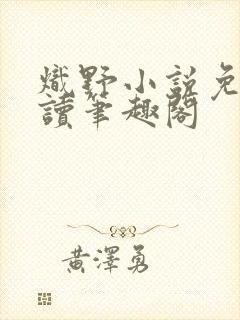 熾野小說免
讀筆趣閣
黃澤勇